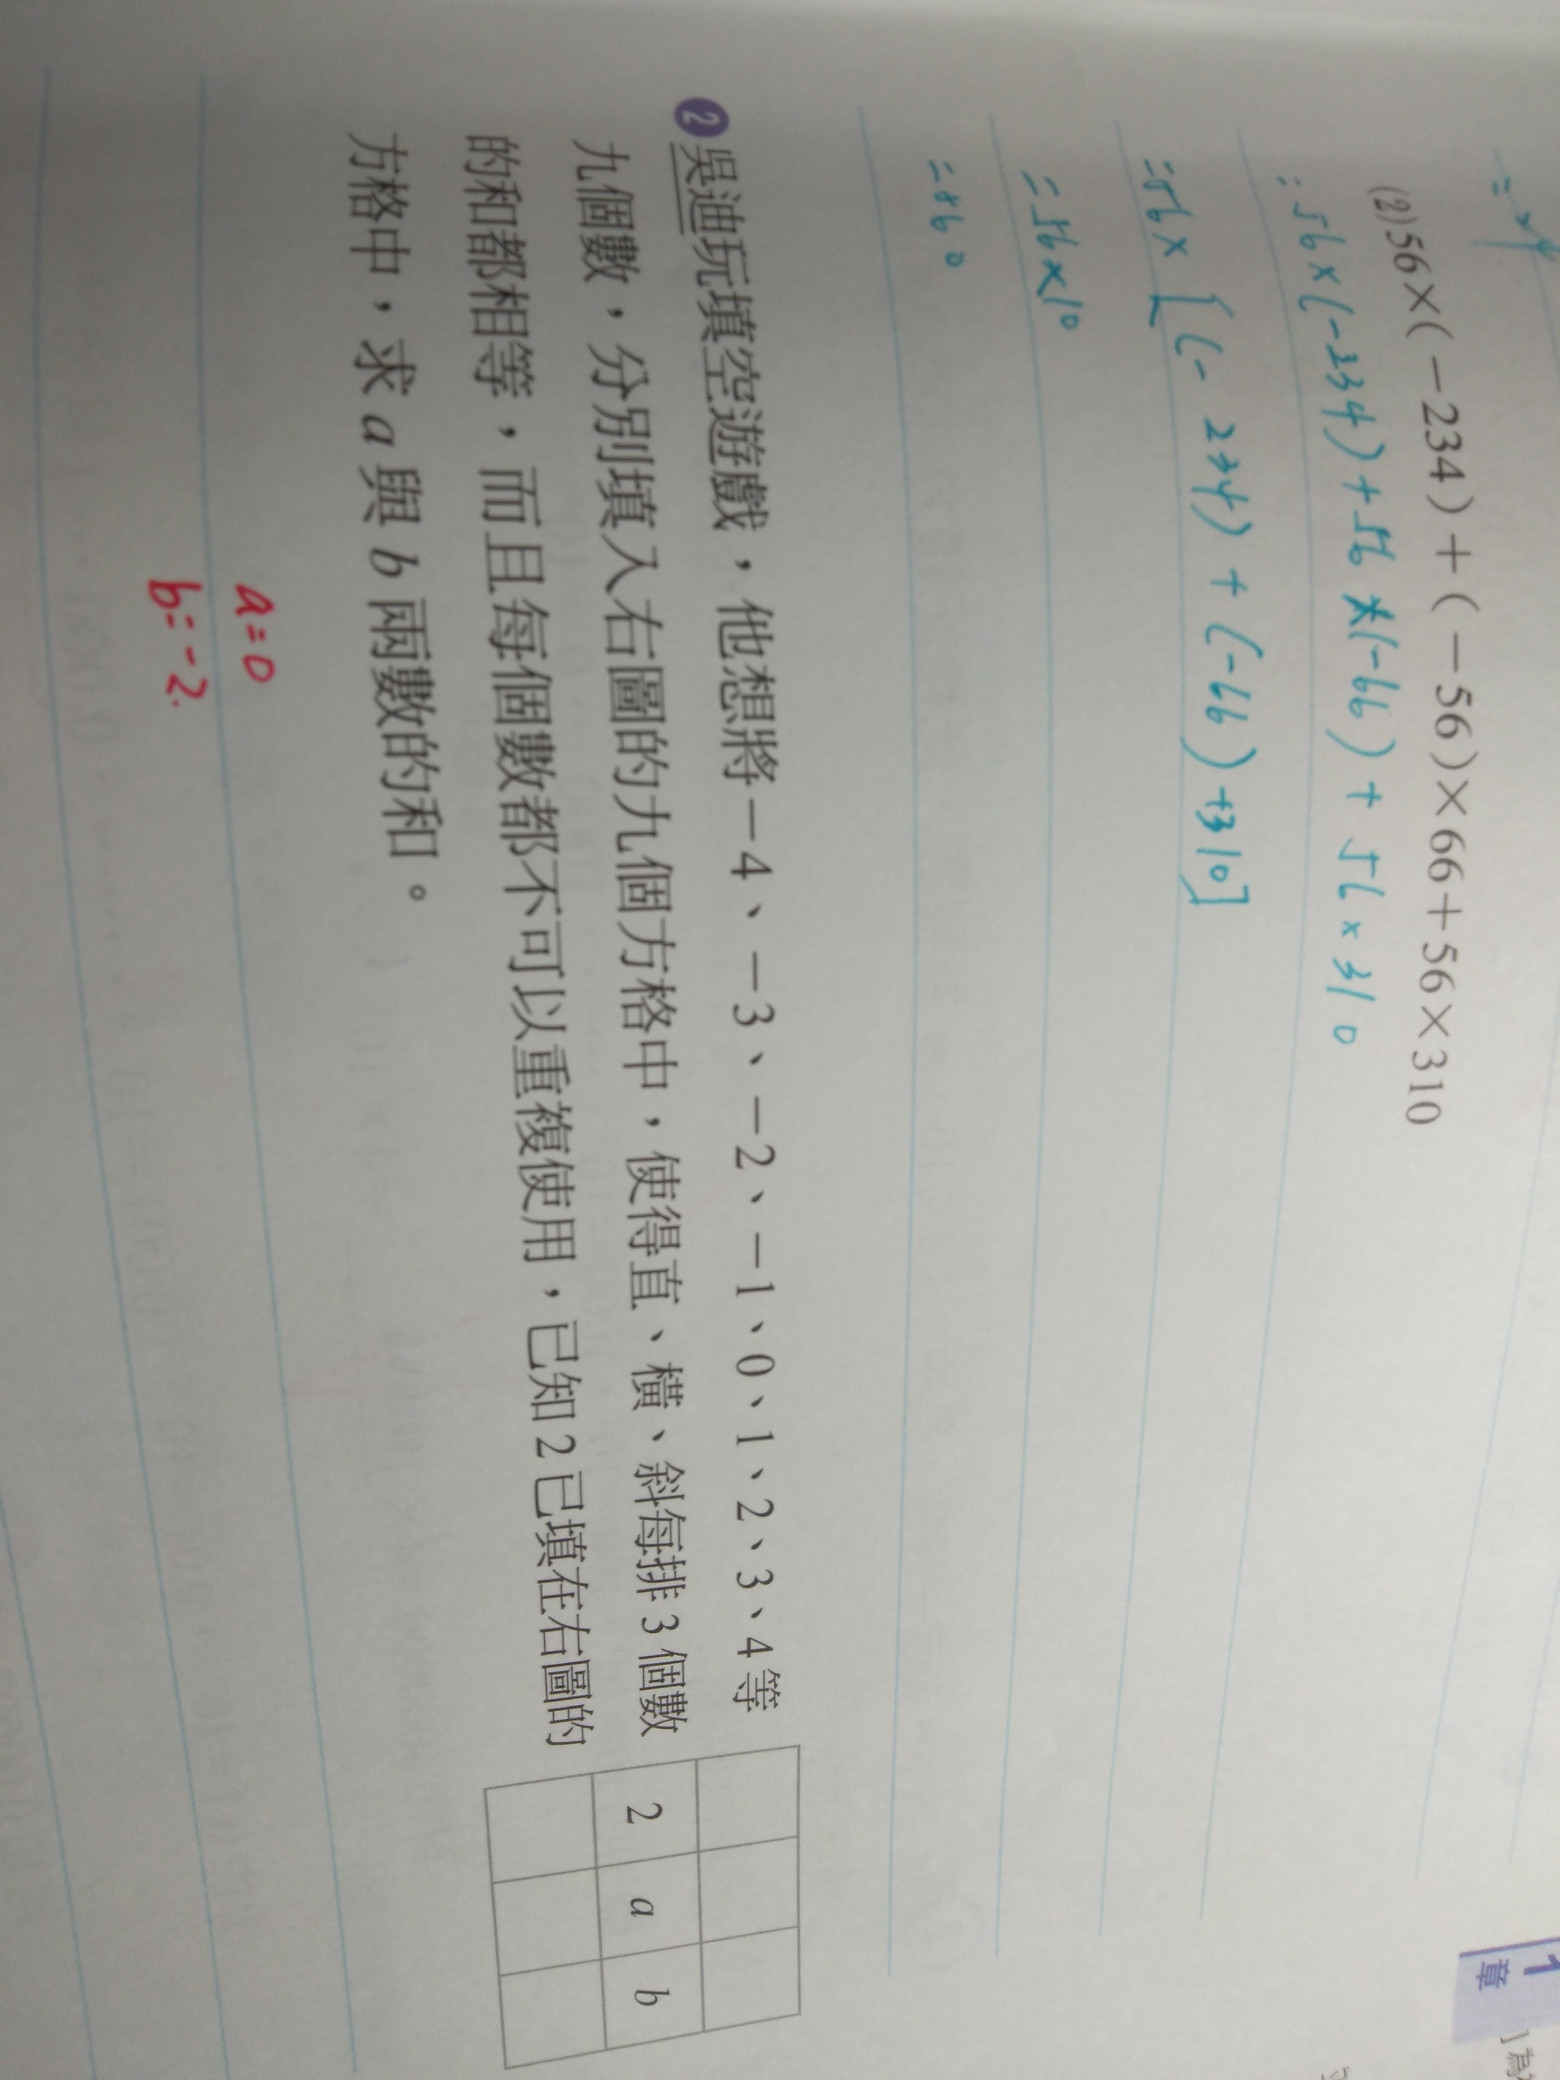 (2)56×(－234)＋(－56)×66＋56×310
=56×(-234)+56×(-66)+56×310
=56×[(-234)+(-66)+310]
=56×10
=560
2 吳迪玩填空遊戲，他想將－4、－3、－2、－1、0、1、2、3、4等
九個數，分別填入右圖的九個方格中，使得直、橫、斜每排3個數
的和都相等，而且每個數都不可以重複使用，已知2已填在右圖的
方格中，求a與b兩數的和。
2 a b
a=0
b=-2.
1
章